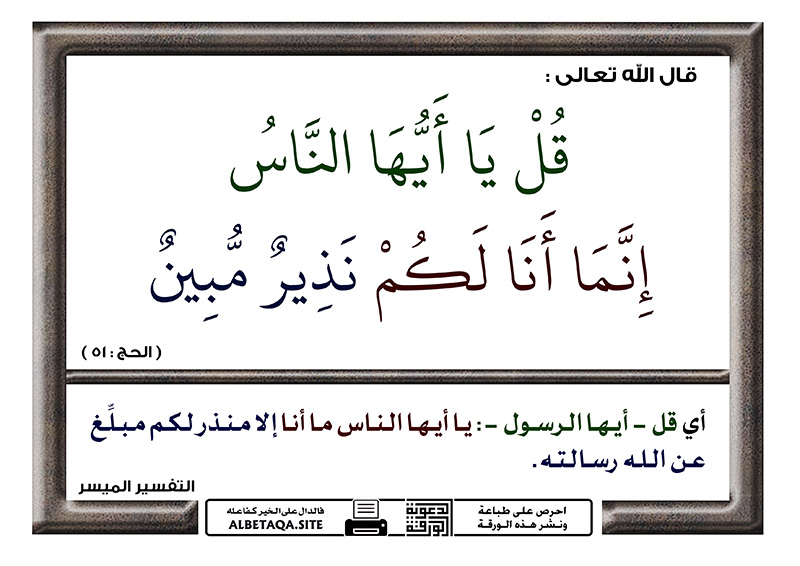 قال الله تعالى :
قُلْ يَا أَيُّهَا النَّاسُ
إِنَّمَا أَنَا لَكُمْ نَذِيرٌ مُّبِينٌ
( الحج : ٥١ )
أي قل – أيها الرسول – : يا أيها الناس ما أنا إلا منذر لكم مبلِّغ
عن الله رسالته .
التفسير الميسر
احرص على طباعة
ونشر هذه الورقة
الورقة
الدعوية
فالدال على الخير كفاعله
ALBETAQA.SITE